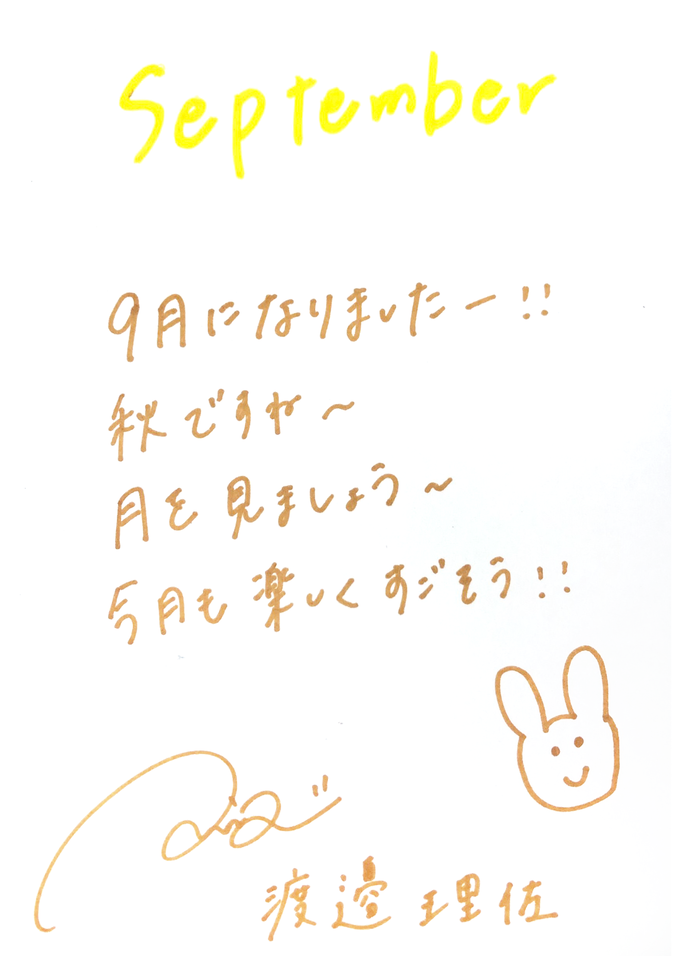 September
9月になりましたー!!
秋ですね〜
月を見ましょう〜
今月も楽しくすごそう!!
渡邉理佐